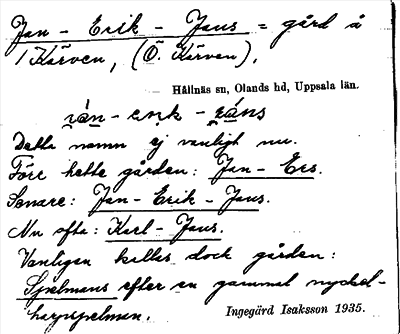 Jan - Erik - Jans = gård å
1 Kärven, (Ö. Kärven).
Hållnäs sn, Olands hd, Uppsala län.
Detta namn ej vanligt nu.
Förr hette gården: Jan - Ers.
Senare: Jan - Erik - Jans.
Nu ofta: Karl - Jans.
Vanligen kallas dock gården:
Spelmans efter en gammal nyckel-
harpspelman.
Ingegärd Isaksson 1935.